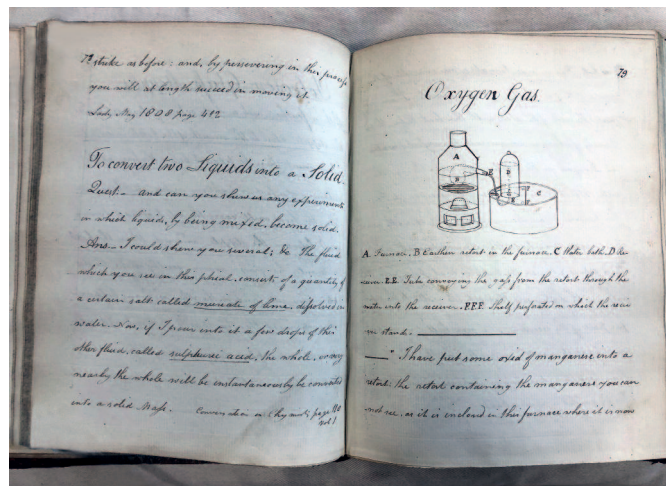 To strike as before: and, by persevering in this process
you will at length succeed in moving it.
Lady May 1808 page 412
To convert two Liquids into a Solid.
Quest. – and can you shew us any experiments
in which liquids, by being mixed, become solid.
Ans. – I could shew you several; &c The fluid
which you see in this phial, consists of a quantity of
a certain salt called muriate of lime, dissolved in
water. Now, if I pour into it a few drops of this
other fluid, called sulphuric acid, the whole, or very
nearly the whole will be instantaneously be converted
into a solid Mass. Conversation on Chymistry page
vol 1
79
Oxygen Gas.
A
B
E
D
C
E
F
A. Furnace. B Earthen retort in the furnace. C Water bath. D Re
ceiver. E.E. Tube conveying the gass from the retort through the
water into the receiver. F.F.F. Shelf perforated on which the recei
ver stands.
" I have put some oxid of manganese into a
retort. the retort containing the manganese you can
not see, as it is enclosed in this furnace where it is now